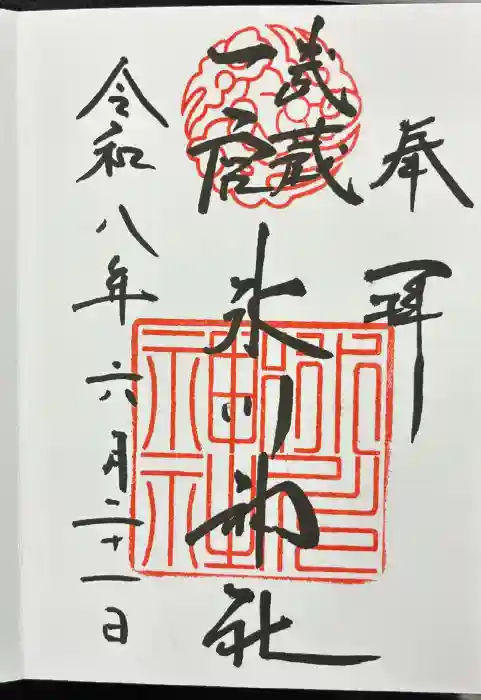 奉拝
武蔵
一宮
氷川神社
令和八年六月二十一日
氷川
神社